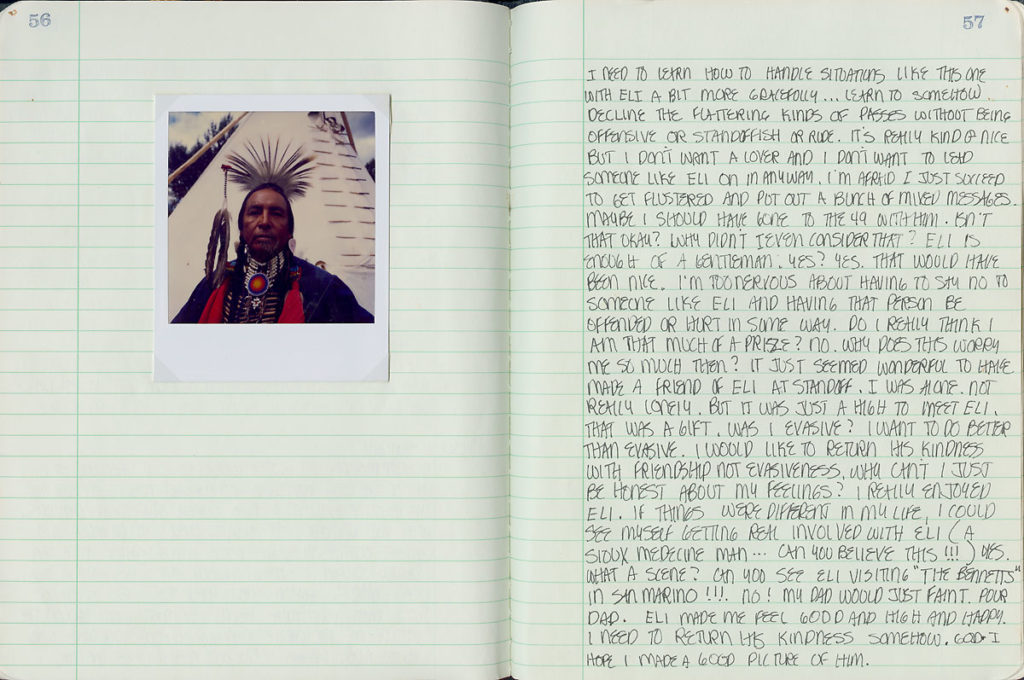 56
57
I NEED TO LEARN HOW TO HANDLE SITUATIONS LIKE THIS ONE
WITH ELI A BIT MORE GRACEFULLY... LEARN TO SOMEHOW.
DECLINE THE FLATTERING KINDS OF PASSES WITHOUT BEING
OFFENSIVE OR STANDOFFISH OR RUDE. IT'S REALLY KIND OF NICE
BUT I DON'T WANT A LOVER AND I DON'T WANT TO LEAD
SOMEONE LIKE ELI ON IN ANYWAY. I'M AFRAID I JUST SUCCEED
TO GET FLUSTERED AND PUT OUT A BUNCH OF MIXED MESSAGES.
MAYBE I SHOULD HAVE GONE TO THE 49 WITH HIM. ISN'T
THAT OKAY? WHY DIDN'T I EVEN CONSIDER THAT? ELI IS
ENOUGH OF A GENTLEMAN. YES? YES. THAT WOULD HAVE
BEEN NICE. I'M TOO NERVOUS ABOUT HAVING TO SAY NO TO
SOMEONE LIKE ELI AND HAVING THAT PERSON BE
OFFENDED OR HURT IN SOME WAY. DO I REALLY THINK I
AM THAT MUCH OF A PRIZE? NO. WHY DOES THIS WORRY
ME SO MUCH THEN? IT JUST SEEMED WONDERFUL TO HAVE
MADE A FRIEND OF ELI AT STANDOFF. I WAS ALONE. NOT
REALLY LONELY. BUT IT WAS JUST A HIGH TO MEET ELI.
THAT WAS A GIFT. WAS I EVASIVE? I WANT TO DO BETTER
THAN EVASIVE. I WOULD LIKE TO RETURN HIS KINDNESS
WITH FRIENDSHIP NOT EVASIVENESS. WHY CAN'T I JUST
BE HONEST ABOUT MY FEELINGS? I REALLY ENJOYED
ELI. IF THINGS WERE DIFFERENT IN MY LIFE, I COULD
SEE MYSELF GETTING REAL INVOLVED WITH ELI (A
SIOUX MEDECINE MAN... CAN YOU BELIEVE THIS!!!) YES.
WHAT A SCENE? CAN YOU SEE ELI VISITING "THE BENNETTS"
IN SAN MARINO!!!. NO! MY DAD WOULD JUST FAINT. POUR
DAD. ELI MADE ME FEEL GOOD AND HIGH AND HAPPY.
I NEED TO RETURN HIS KINDNESS SOMEHOW. GOD I
HOPE I MADE A GOOD PICTURE OF HIM.